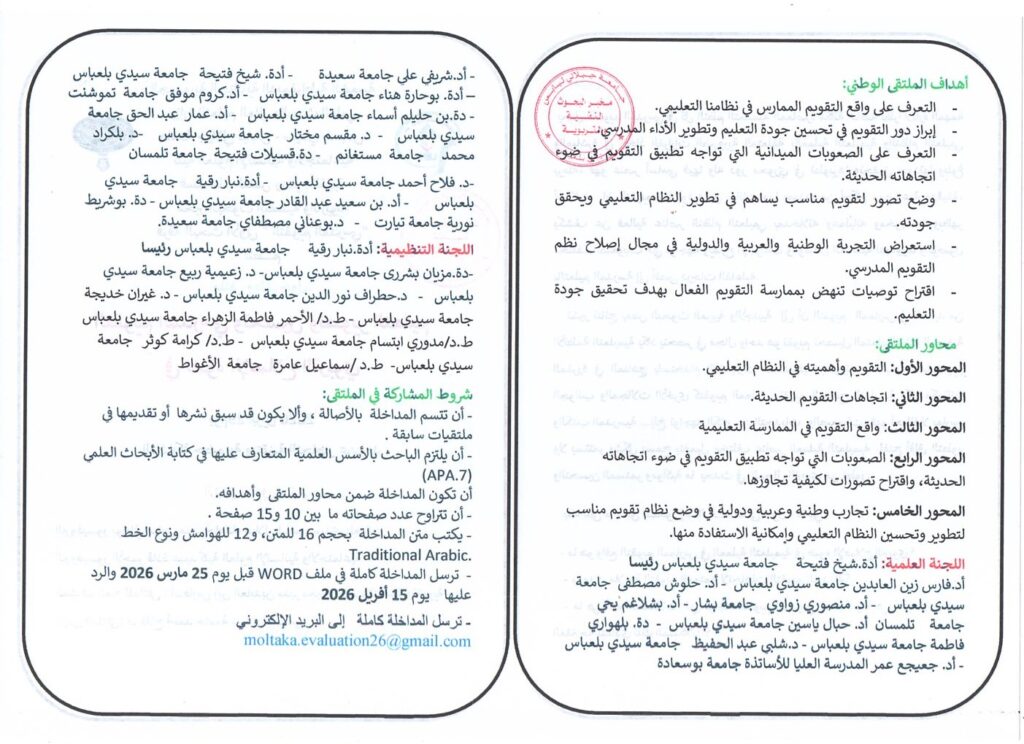 أهداف الملتقى الوطني:
- التعرف على واقع التقويم الممارس في نظامنا التعليمي.
- إبراز دور التقويم في تحسين جودة التعليم وتطوير الأداء المدرسي.
- التعرف على الصعوبات الميدانية التي تواجه تطبيق التقويم في ضوء
اتجاهاته الحديثة.
- وضع تصور لتقويم مناسب يساهم في تطوير النظام التعليمي ويحقق
جودته.
- استعراض التجربة الوطنية والعربية والدولية في مجال إصلاح نظم
التقويم المدرسي.
- اقتراح توصيات تنهض بممارسة التقويم الفعال بهدف تحقيق جودة
التعليم.
محاور الملتقى:
المحور الأول: التقويم وأهميته في النظام التعليمي.
المحور الثاني: اتجاهات التقويم الحديثة.
المحور الثالث: واقع التقويم في الممارسة التعليمية
المحور الرابع: الصعوبات التي تواجه تطبيق التقويم في ضوء اتجاهاته
الحديثة، واقتراح تصورات لكيفية تجاوزها.
المحور الخامس: تجارب وطنية وعربية ودولية في وضع نظام تقويم مناسب
لتطوير وتحسين النظام التعليمي وإمكانية الاستفادة منها.
اللجنة العلمية: أدة.شيخ فتيحة جامعة سيدي بلعباس رئيسا
أد.فارس زين العابدين جامعة سيدي بلعباس - أد.حلوش مصطفى جامعة
سيدي بلعباس - أد. منصوري زواوي جامعة بشار - أد. بشلاغم يحي
جامعة تلمسان أد. حبال ياسين جامعة سيدي بلعباس - دة. بلهواري
فاطمة جامعة سيدي بلعباس - د.شلبي عبد الحفيظ جامعة سيدي بلعباس
- أد. جعيجع عمر المدرسة العليا للأساتذة جامعة بوسعادة
جامعة جيلالي ليابس
مخبر البحوث
النفسية
والتربوية
- أد.شريفي علي جامعة سعيدة - أدة. شيخ فتيحة جامعة سيدي بلعباس
– أدة. بوحارة هناء جامعة سيدي بلعباس - أد.كروم موفق جامعة تموشنت
- دة.بن حليلم أسماء جامعة سيدي بلعباس - أد. عمار عبد الحق جامعة
سيدي بلعباس - د. مقسم مختار جامعة سيدي بلعباس -د. بلكراد
محمد جامعة مستغانم - دة.قسيلات فتيحة جامعة تلمسان
-د. فلاح أحمد جامعة سيدي بلعباس - أدة.نبار رقية جامعة سيدي
بلعباس - أد. بن سعيد عبد القادر جامعة سيدي بلعباس - دة. بوشريط
نورية جامعة تيارت - د.بوعناني مصطفاي جامعة سعيدة.
اللجنة التنظيمية: أدة.نبار رقية جامعة سيدي بلعباس رئيسا
-دة.مزيان بشرى جامعة سيدي بلعباس- د. زعيمية ربيع جامعة سيدي
بلعباس - د.حطراف نور الدين جامعة سيدي بلعباس - د. غيران خديجة
جامعة سيدي بلعباس - ط.د/ الأحمر فاطمة الزهراء جامعة سيدي بلعباس
ط.د/مدوري ابتسام جامعة سيدي بلعباس - ط.د/ كرامة كوثر جامعة
سيدي بلعباس- ط.د /سماعيل عامرة جامعة الأغواط
شروط المشاركة في الملتقى:
- أن تتسم المداخلة بالأصالة ، وألا يكون قد سبق نشرها أو تقديمها في
ملتقيات سابقة .
- أن يلتزم الباحث بالأسس العلمية المتعارف عليها في كتابة الأبحاث العلمي
(APA.7)
أن تكون المداخلة ضمن محاور الملتقى وأهدافه.
- أن تتراوح عدد صفحاته ما بين 10 و15 صفحة .
- يكتب متن المداخلة بحجم 16 للمتن، و12 للهوامش ونوع الخط
Traditional Arabic.
- ترسل المداخلة كاملة في ملف WORD قبل يوم 25 مارس 2026 والرد
عليها يوم 15 أفريل 2026
- ترسل المداخلة كاملة إلى البريد الإلكتروني
moltaka.evaluation26@gmail.com